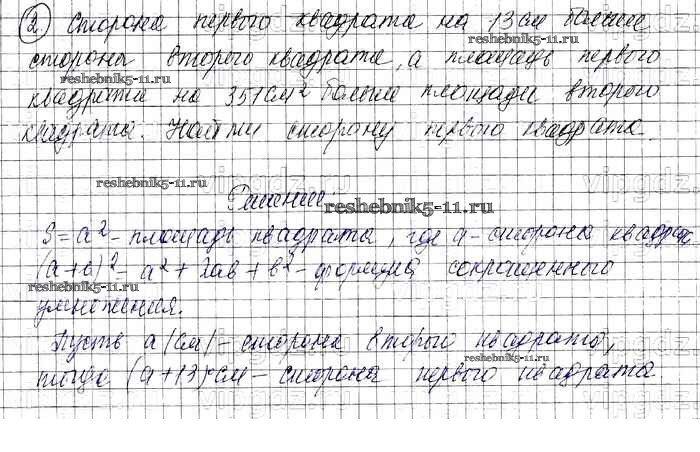 ② Сторона первого квадрата на 13 см больше
стороны второго квадрата, а площадь первого
reshebnik5-11.ru.
квадрата на 351 см² больше площади второго
reshebnik5-11.ru.
квадрата. Найти сторону первого квадрата.
reshebnik5-11.ru.
vipgdz.ru
vipgdz
Решение:
reshebnik5-11.ru.
S = a² - площадь квадрата, где a - сторона квадрата
(a+в)² - a² + 2aв + в² - формула сокращенного
reshebnik5-11.ru.
умножения.
Пусть a (см) - сторона второго квадрата,
reshebnik5-11.ru.
тогда (a+13) см - сторона первого квадрата.
reshebnik5-11.ru.